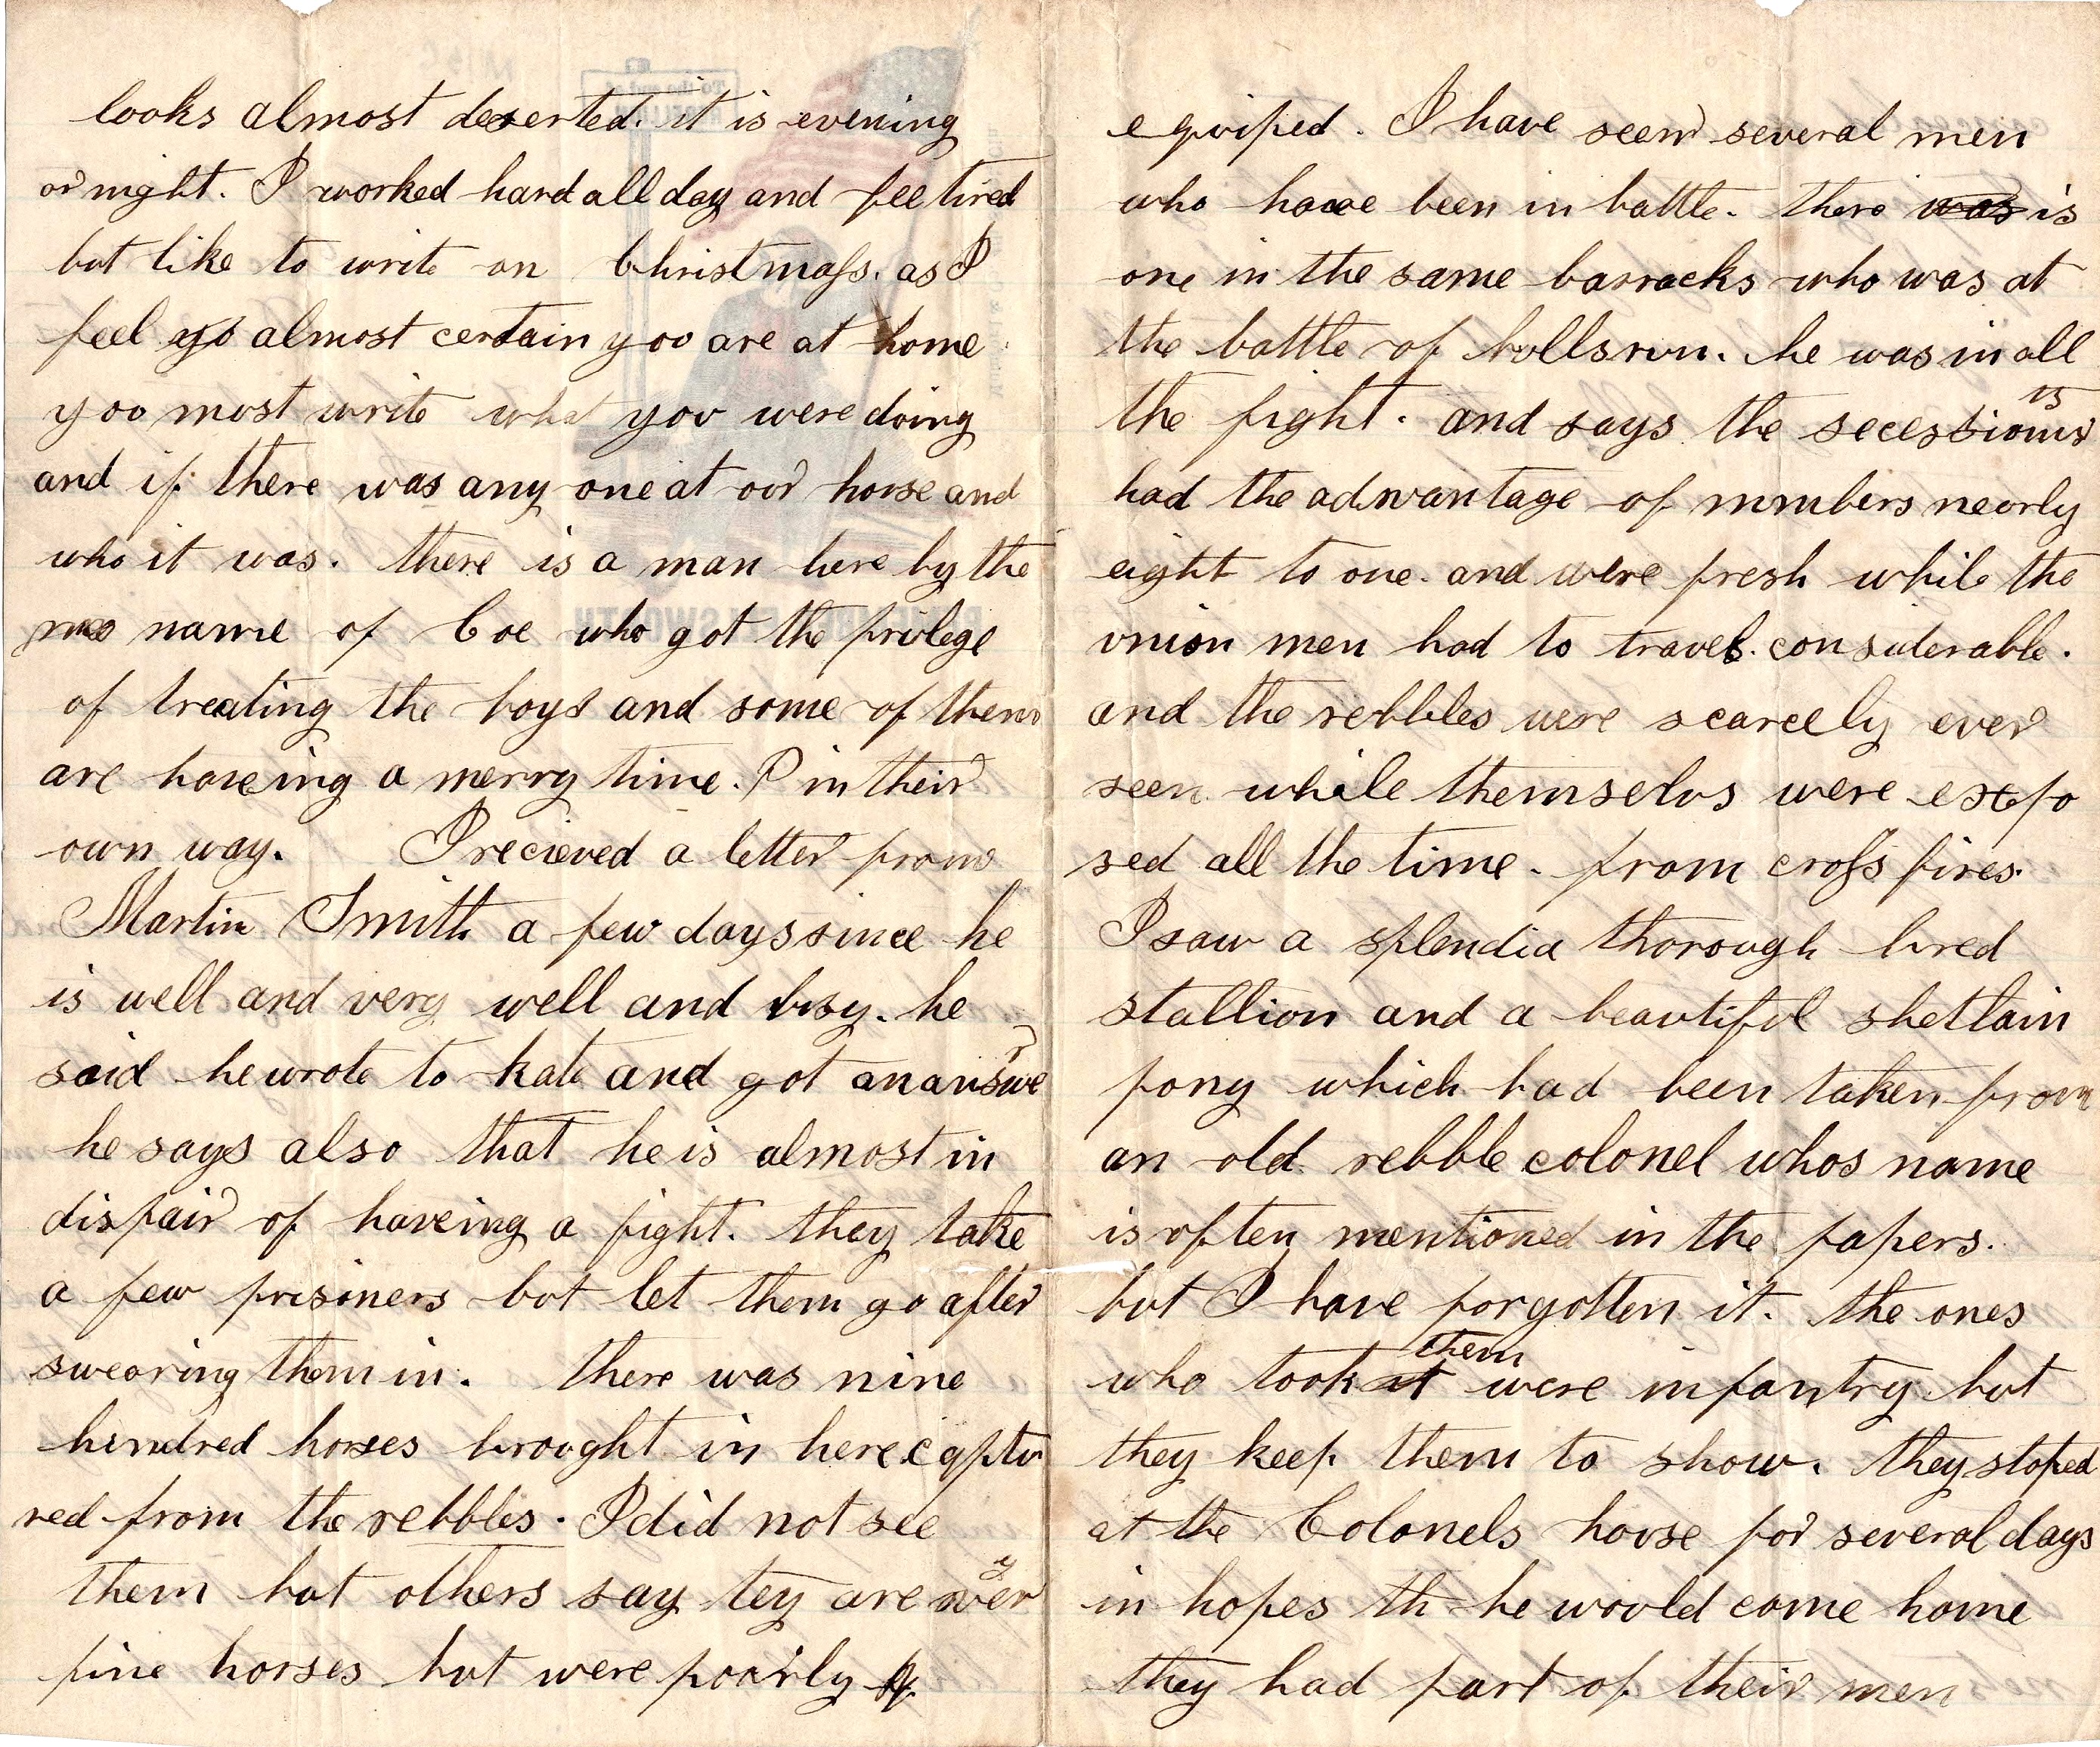 looks almost deserted. it is evening
or night. I worked hard all day and fee tired
but like to write on Christmass. as I
feel almost certain you are at home
you must write what you were doing
and if there was any one at our house and
who it was. there is a man here by the
name of Coe who got the privlege
of treating the boys and some of them
are haveing a merry time. in their
own way. I recieved a letter from
Martin Smith a few days since he
is well and very well and busy. he
said he wrote to Kate and got an answer
he says also that he is almost in
dispair of haveing a fight. they take
a few prisiners but let them go after
swearing them in. there was nine
hundred horses brought in here captu
red from the rebbles. I did not see
them but others say tey are very
fine horses but were poorly
equiped. I have seen several men
who have been in battle. there was is
one in the same barracks who was at
the battle of bulls run. he was in all
the fight. and says the secessionists
had the advantage of numbers nearly
eight to one. and were fresh while the
union men had to travel. considerable.
and the rebbles were scarcely ever
seen while themselvs were expo
sed all the time. from cross fires.
I saw a splendid thorough bred
stallion and a beautiful shetlain
pony which had been taken from
an old rebble colonel whos name
is often mentioned in the papers.
but I have forgotten it. the ones
who took it them were infantry but
they keep them to show. they stoped
at the Colonels house for several days
in hopes th he would come home
they had part of their men